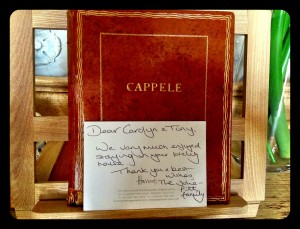 CAPPELE
Dear Carolyn & Tony,
We very much enjoyed
staying in your lovely
house.
Thank you & best
wishes
from The
family